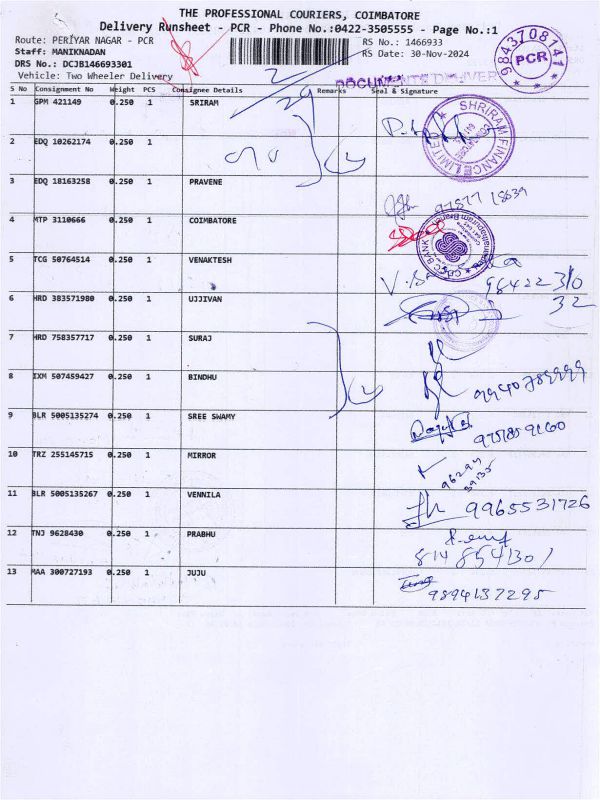 THE PROFESSIONAL COURIERS, COIMBATORE
Delivery Runsheet - PCR - Phone No.:0422-3505555 - Page No.:1
Route: PERIYAR NAGAR - PCR
RS No.: 1466933
Staff: MANIKNADAN
RS Date: 30-Nov-2024
DRS No.: DCJB146693301
Vehicle: Two Wheeler Delivery
9843708141
PCR
S No Consignment No Weight PCS Consignee Details Remarks Seal & Signature
1 GPM 421149 0.250 1 SRIRAM
SHRIRAM FINANCE LIMITED
2 EDQ 10262174 0.250 1
3 EDQ 18163258 0.250 1 PRAVENE
4 MTP 3110666 0.250 1 COIMBATORE
5 TCG 50764514 0.250 1 VENAKTESH
98422 310
32
6 HRD 383571980 0.250 1 UJJIVAN
7 HRD 758357717 0.250 1 SURAJ
8 IXM 507459427 0.250 1 BINDHU
9 BLR 5005135274 0.250 1 SREE SWAMY
10 TRZ 255145715 0.250 1 MIRROR
11 BLR 5005135267 0.250 1 VENNILA
9965531726
12 TNJ 9628430 0.250 1 PRABHU
8148541301
13 MAA 300727193 0.250 1 JUJU
9894137295